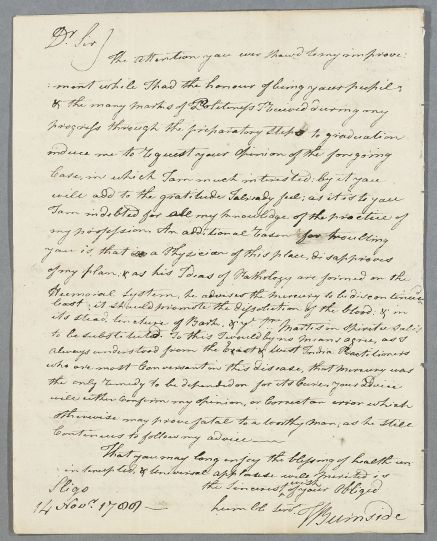 Dr. Sir
The attention you ever shew'd to my improve-
ment while I had the honour of being your pupil,
& the many marks of Politeness I received during my
progress through the preparatory steps to graduation
induce me to request your opinion of the foregoing
Case, in which I am much interested: by it you
will add to the gratitude I already feel; as it is to you
I am indebted for all my knowledge of the practice of
my profession. An additional reason for troubling
you is, that a Physician of this place, disapproves
of my plan, & as his Ideas of Pathology are formed on the
Humoral System, he advises the mercury to be discontinued
least it should promote the dissolution of the blood: & in
its stead tincture of Bark, & Martis in Spiritu Salis
to be substituted. To this I would by no means agree, as I
always understood from the East & West India Practitioners
who are most Conversant in this disease, that mercury was
the only remedy to be depended on for its Cure. Your advice
will either Confirm my opinion, or Correct an error which
otherwise may prove fatal to a worthy man, as he still
Continues to follow my advice
That you may long enjoy the blessing of health un-
interrupted, & universal applause well merited is
the sincerest wish of your Obliged
Sligo
humble Servt.
14 Novr. 1788
Burnside